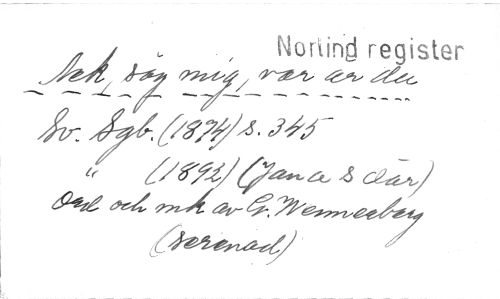 Norlind register
Ack, säg mig, var är du
Sv. Sgb. (1874) s. 345
" (1892) ( s där)
Ord och mk av G. Wennerberg
(serenad)